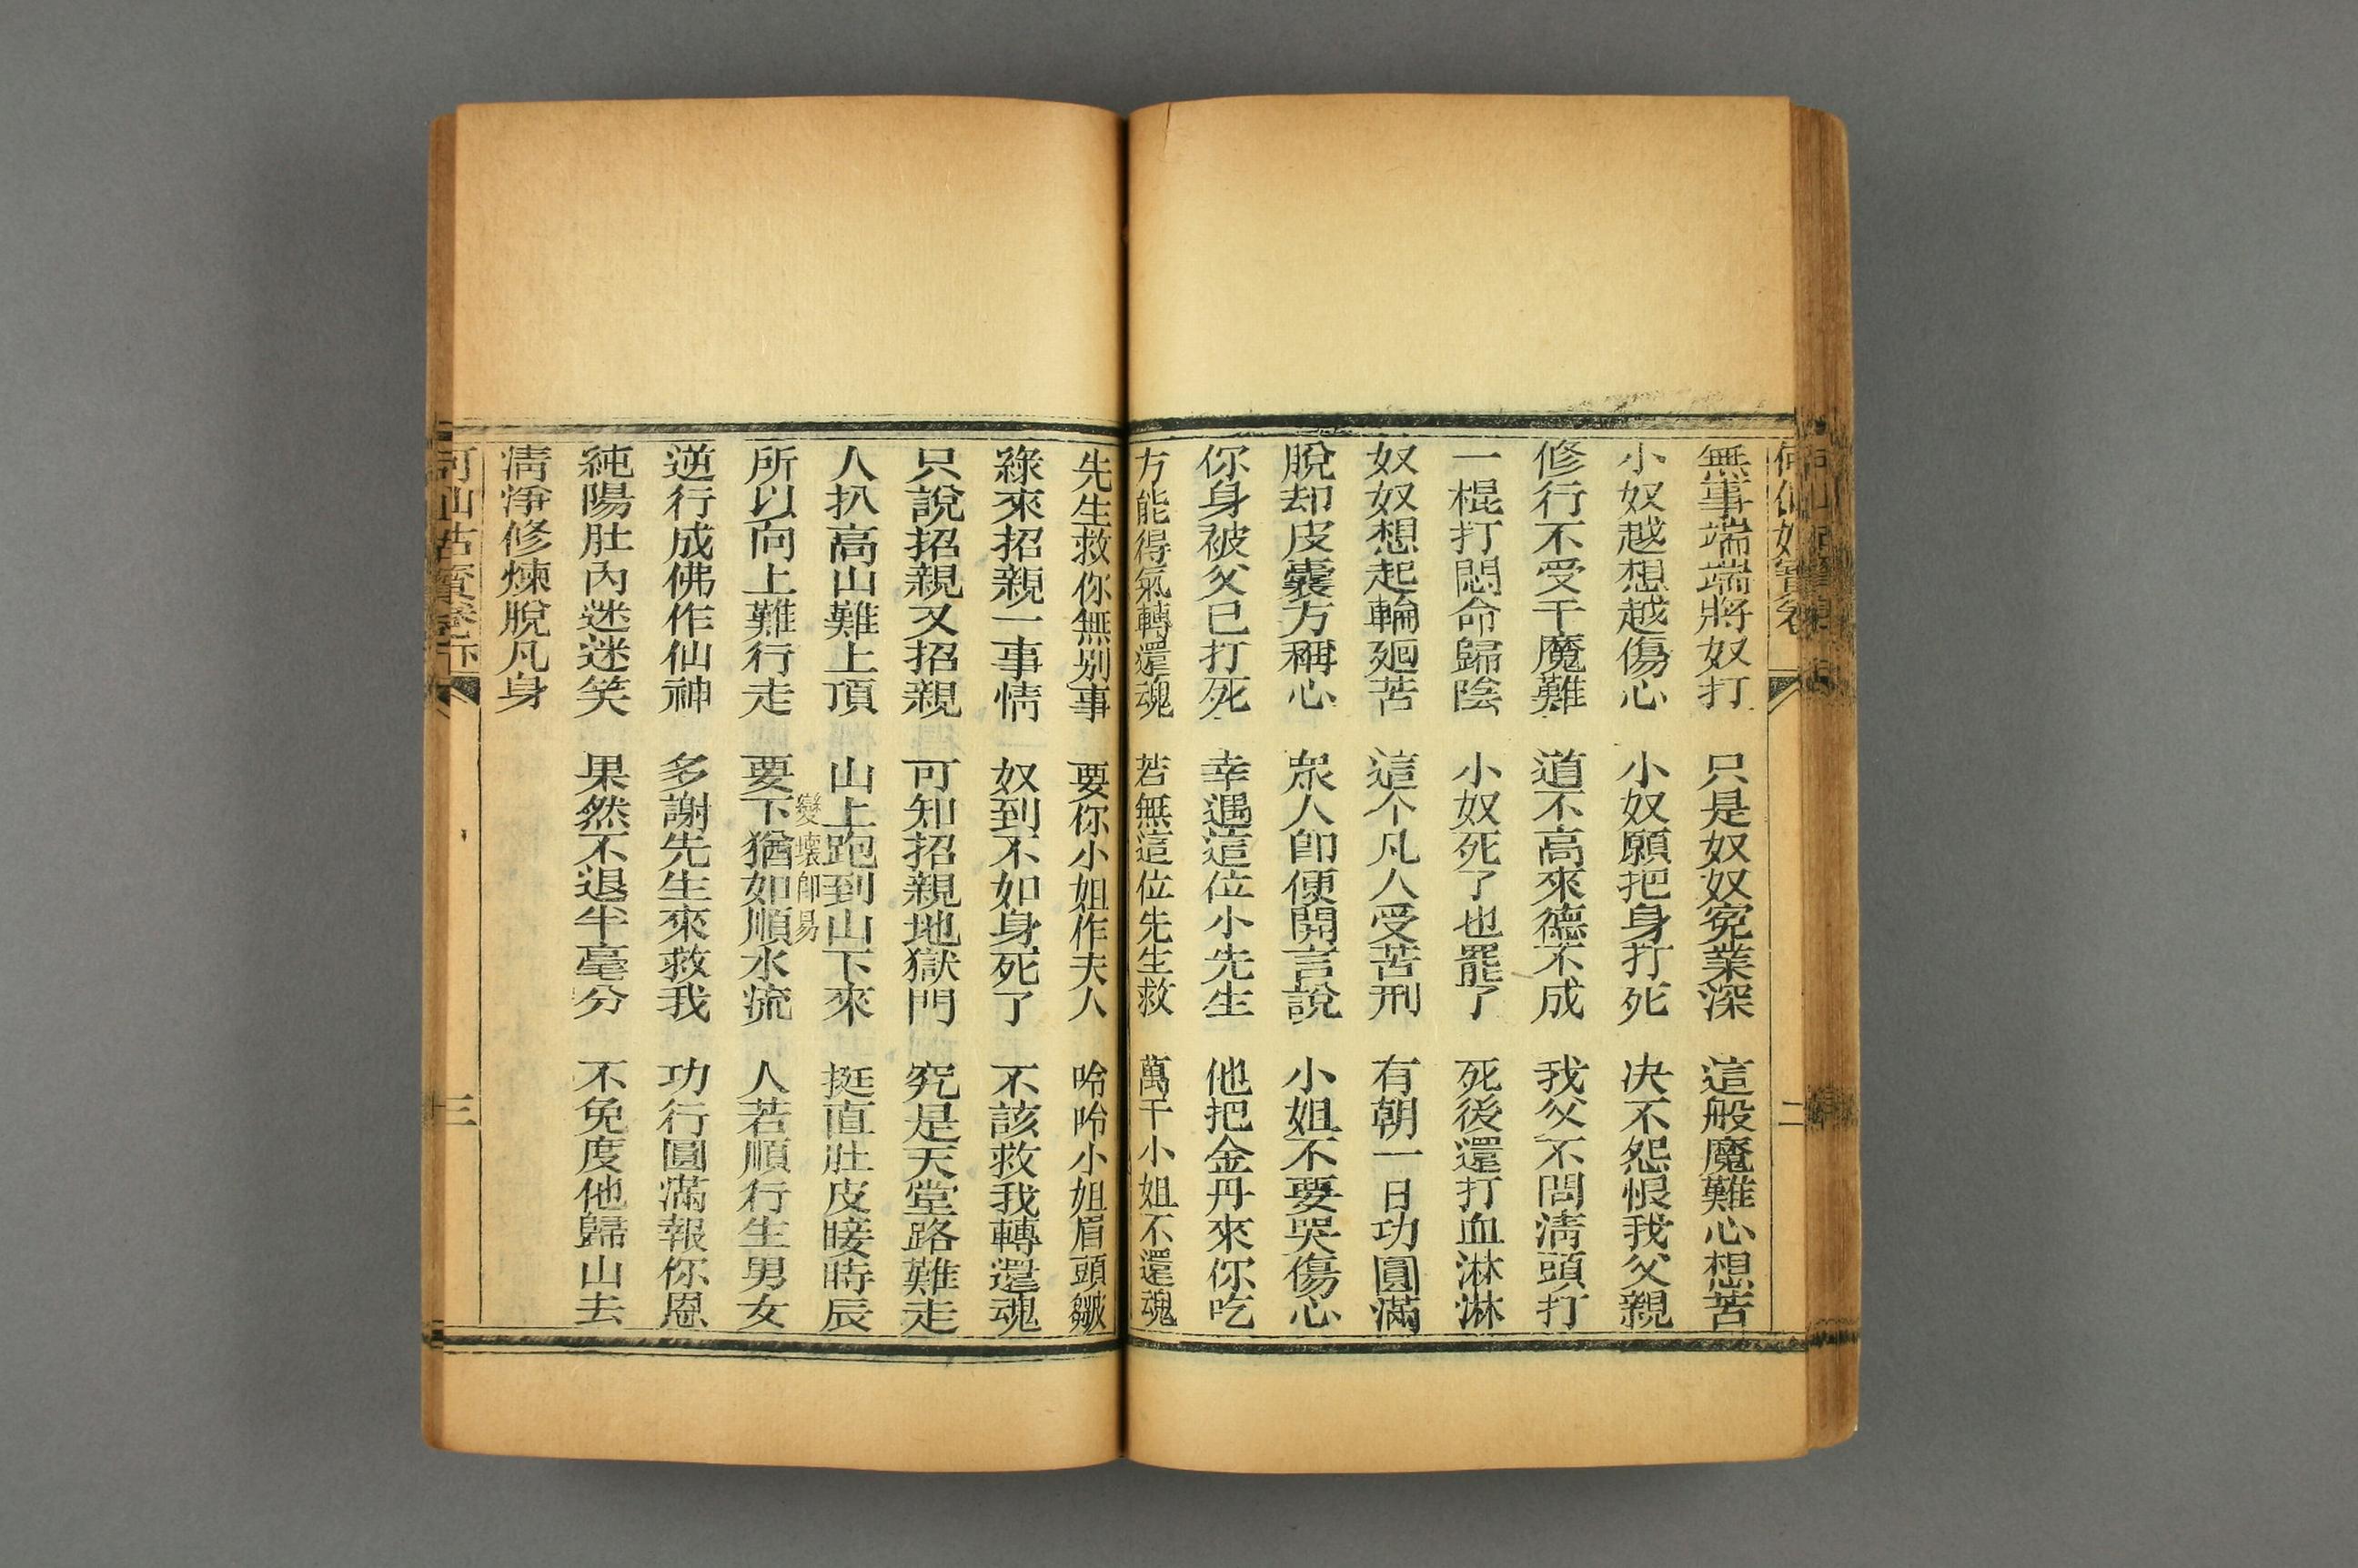 無事端端將奴打　只是奴奴寃業深　這般魔難心想苦
小奴越想越傷心　小奴願把身打死　决不怨恨我父親
修行不受千魔難　道不高來德不成　我父不問淸頭打
一棍打悶命歸陰　小奴死了也罷了　死後還打血淋淋
奴奴想起輪廻苦　這个凡人受苦刑　有朝一日功圓滿
脫却皮囊方稱心　衆人卽便開言說　小姐不要哭傷心
你身被父已打死　幸遇這位小先生　他把金丹來你吃
方能得氣轉還魂　若無這位先生救　萬千小姐不還魂
先生救你無別事　要你小姐作夫人　唥唥小姐眉頭皺
祿來招親一事情　奴到不如身死了　不該救我轉還魂
只說招親又招親　可知招親地獄門　究是天堂路難走
人扒高山難上頂　山上跑到山下來　挺直肚皮唼時辰
變壞卽易
所以向上難行走　要下猶如順水流　人若順行生男女
逆行成佛作仙神　多謝先生來救我　功行圓滿報你恩
純陽肚內迷迷笑　果然不退半毫分　不免度他歸山去
淸淨修煉脫凡身
二
三